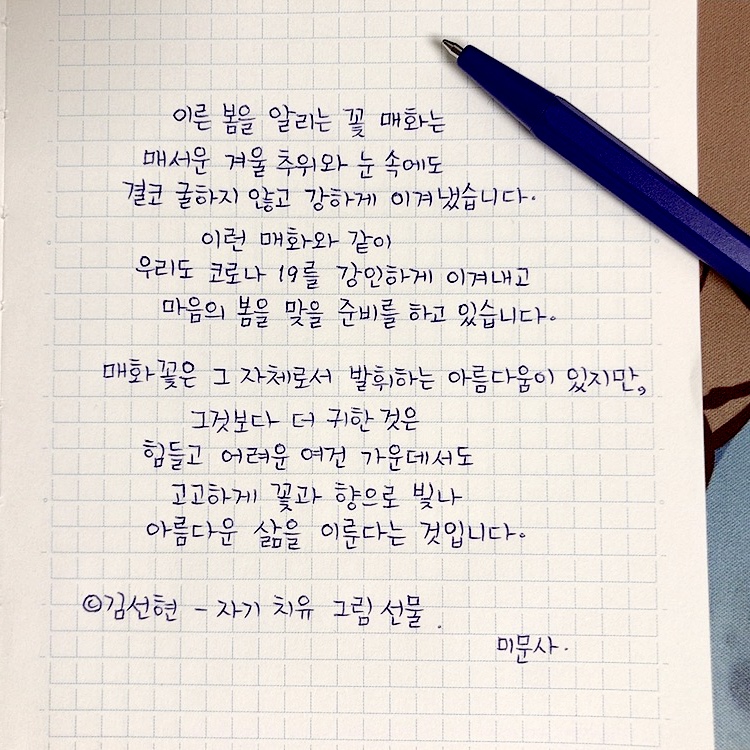 이른 봄을 알리는 꽃 매화는
매서운 겨울 추위와 눈 속에도
결코 굴하지 않고 강하게 이겨냈습니다.
이런 매화와 같이
우리도 코로나 19를 강인하게 이겨내고
마음의 봄을 맞을 준비를 하고 있습니다.
매화꽃은 그 자체로서 발휘하는 아름다움이 있지만,
그것보다 더 귀한 것은
힘들고 어려운 여건 가운데서도
고고하게 꽃과 향으로 빛나
아름다운 삶을 이룬다는 것입니다.
©김선현 - 자기 치유 그림 선물.
미문사.